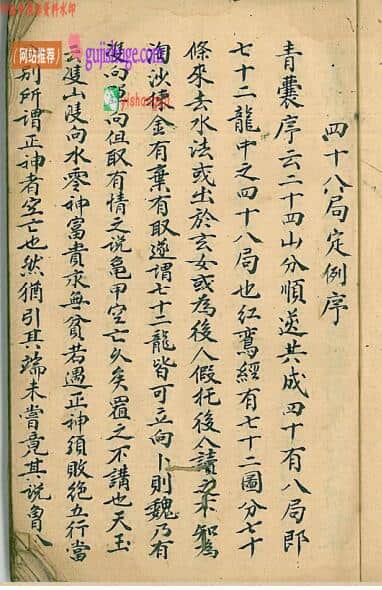 四十八局定例序
青囊序云二十四山分順逆共成四十有八局即
七十二龍中之四十八局也红鸞經有七十二圖分七十
條來去水法或出於玄女或為後人假托後人讀之不知為
淘沙金有棄有取遂謂七十二龍皆可立向卜則魏乃有
雙向向但取有情之说龜甲空亡久矣置之不講也天玉
雙山雙向水零神富貴永無貧若遇正神須敗絕五行當
別所謂正神者空亡也然猶引其端未嘗竟其说
资料水印
(网站推荐)
gujishage.com